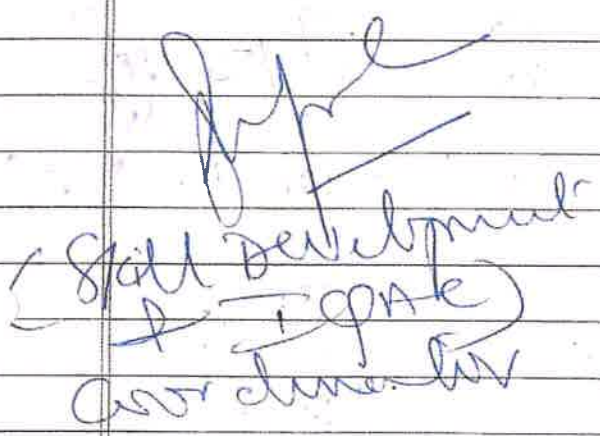 (Skill Development
& IQAC)
Coordinator